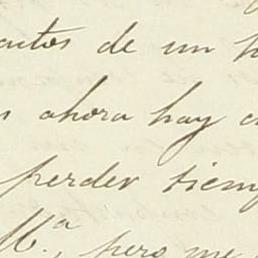 actos de un h
s ahora hay c
perder siemp
M.ª, pero me